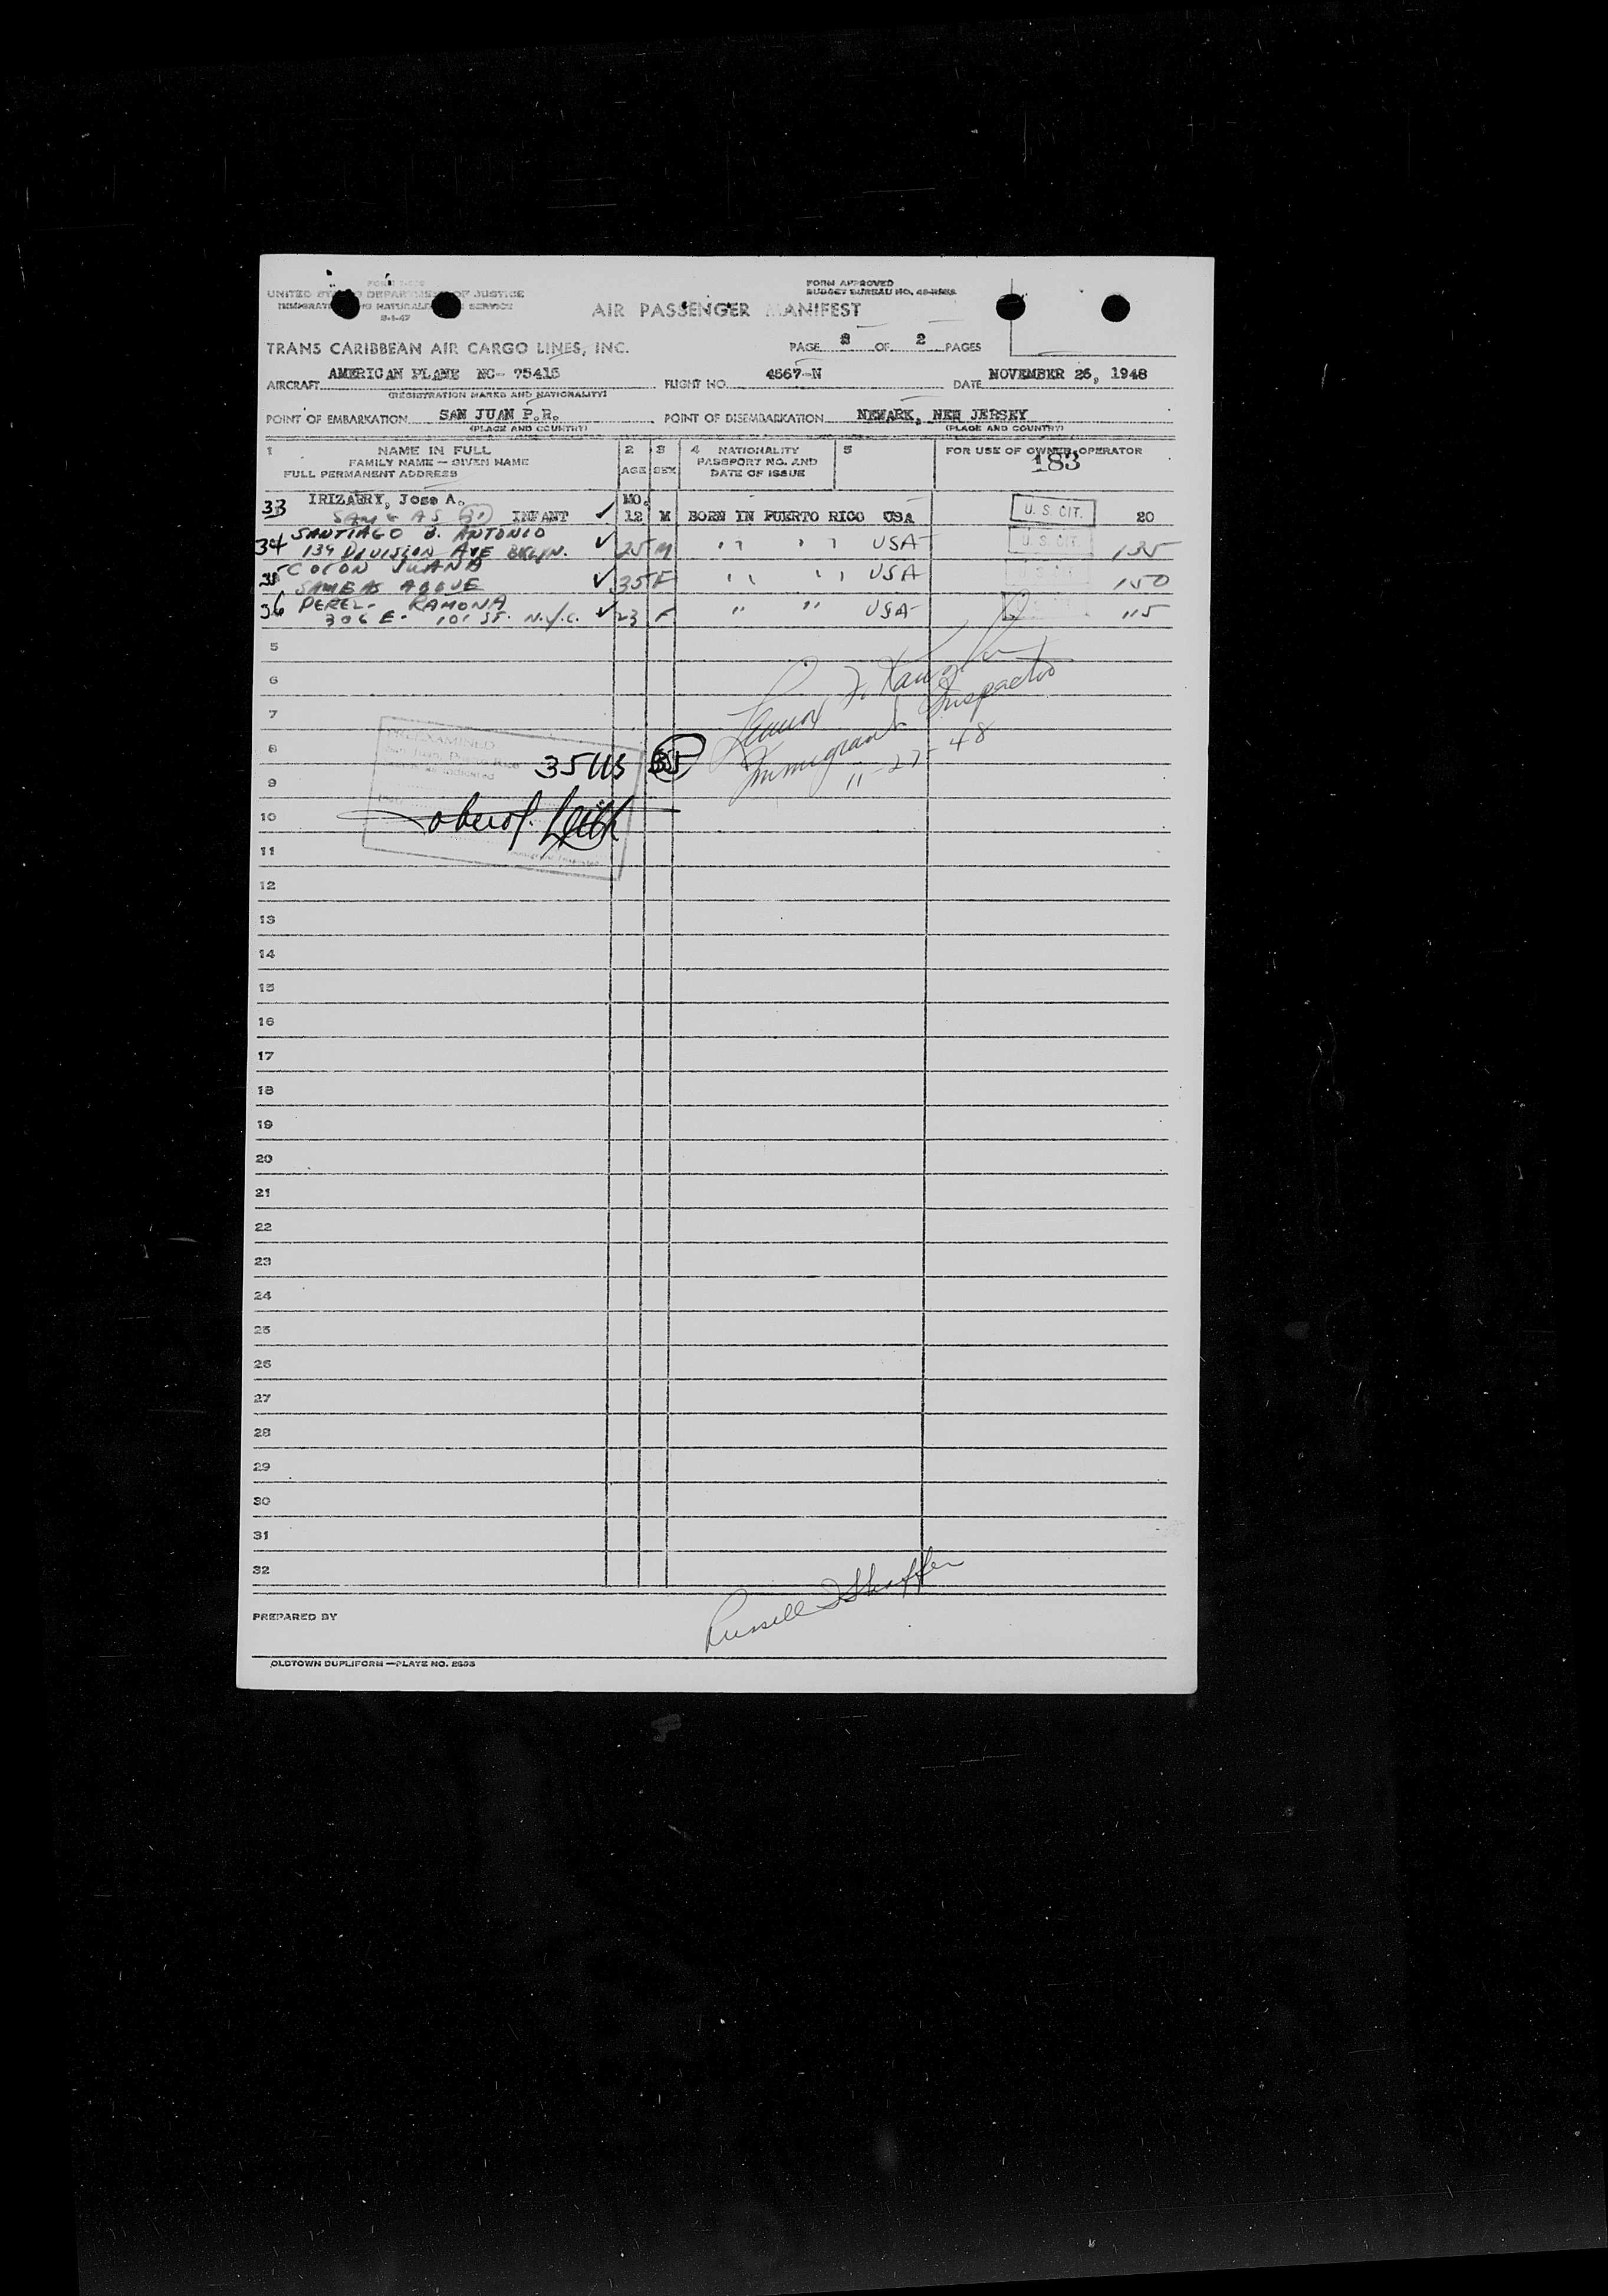 FORM APPROVED
UNITED STATES DEPARTMENT OF JUSTICE
BUDGET BUREAU NO.
IMMIGRATION AND NATURALIZATION SERVICE
AIR PASSENGER MANIFEST
TRANS CARIBBEAN AIR CARGO LINES, INC.
PAGE OF 2 PAGES
AIRCRAFT AMERICAN PLANE NC- 75415 FLIGHT NO. 4667-N DATE NOVEMBER 26, 1948
(REGISTRATION MARKS AND NATIONALITY)
POINT OF EMBARKATION SAN JUAN P.R. POINT OF DISEMBARKATION NEWARK, NEW JERSEY
(PLACE AND COUNTRY) (PLACE AND COUNTRY)
1 NAME IN FULL 2 3 4 NATIONALITY 5 FOR USE OF OWNER-OPERATOR
FAMILY NAME — GIVEN NAME AGE SEX PASSPORT NO. AND 183
FULL PERMANENT ADDRESS DATE OF ISSUE
33 IRIZARRY, Jose A. MO.
SAME AS 31 INFANT ✓ 12 M BORN IN PUERTO RICO USA U. S. CIT. 20
34 SANTIAGO B. ANTONIO
139 DIVISION AVE BKLYN. ✓ 25 M " " USA U. S. CIT. 135
35 COLON JUANA
SAME AS ABOVE ✓ 35 F " " USA 150
36 PEREZ- RAMONA
306 E. 101 ST. N.Y.C. ✓ 23 F " " USA 115
5
6
7
Immigrant Inspector
11-27-48
PREEXAMINED
San Juan, Puerto Rico
8
35 US 35
9
10
11
12
13
14
15
16
17
18
19
20
21
22
23
24
25
26
27
28
29
30
31
32
Russell Shaffer
PREPARED BY
OLDTOWN DUPLIFORM —PLATE NO.